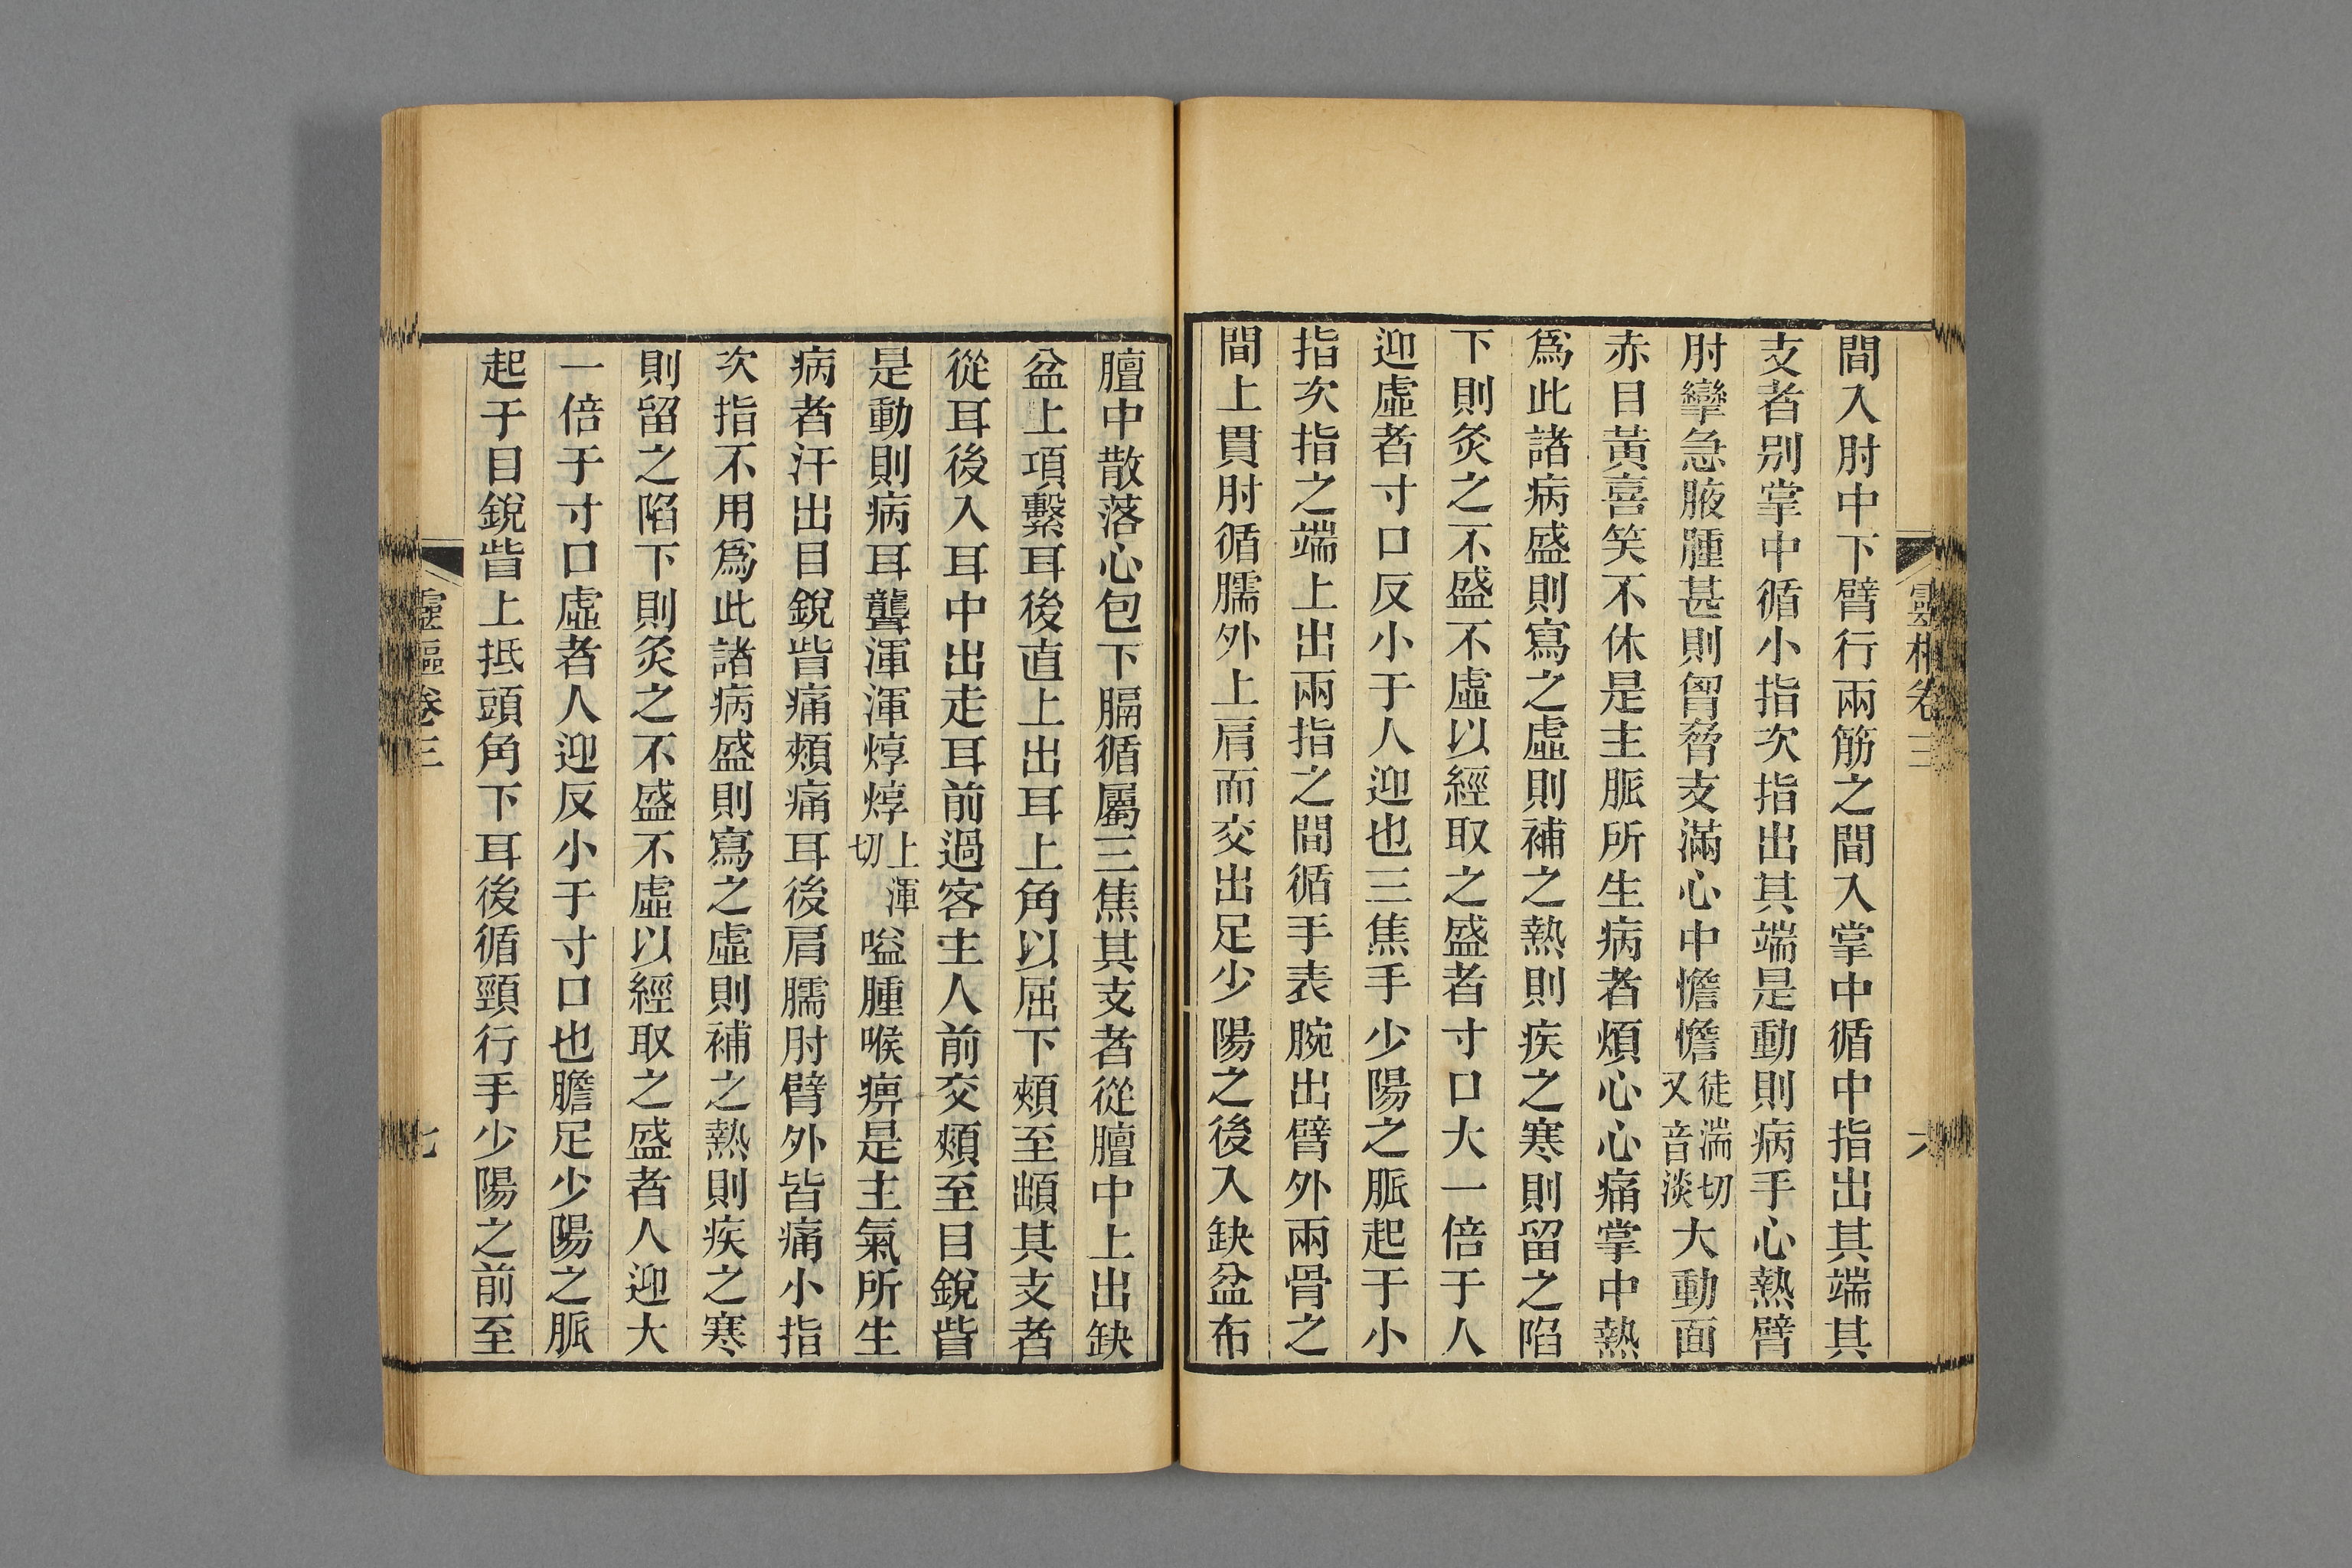 靈樞卷三
六
間入肘中下臂行兩筋之間入掌中循中指出其端其
支者别掌中循小指次指出其端是動則病手心熱臂
肘攣急腋腫甚則胷脅支滿心中憺憺徒湍切又音淡大動面
赤目黃喜笑不休是主脈所生病者煩心心痛掌中熱
爲此諸病盛則寫之虛則補之熱則疾之寒則留之陷
下則灸之不盛不虛以經取之盛者寸口大一倍于人
迎虛者寸口反小于人迎也三焦手少陽之脈起于小
指次指之端上出兩指之間循手表腕出臂外兩骨之
間上貫肘循臑外上肩而交出足少陽之後入缺盆布
膻中散落心包下膈循屬三焦其支者從膻中上出缺
盆上項繫耳後直上出耳上角以屈下頰至䪼其支者
從耳後入耳中出走耳前過客主人前交頰至目銳眥
是動則病耳聾渾渾焞焞上渾切嗌腫喉痹是主氣所生
病者汗出目銳眥痛頰痛耳後肩臑肘臂外皆痛小指
次指不用爲此諸病盛則寫之虛則補之熱則疾之寒
則留之陷下則灸之不盛不虛以經取之盛者人迎大
一倍于寸口虛者人迎反小于寸口也膽足少陽之脈
起于目銳眥上抵頭角下耳後循頸行手少陽之前至
靈樞卷三
七